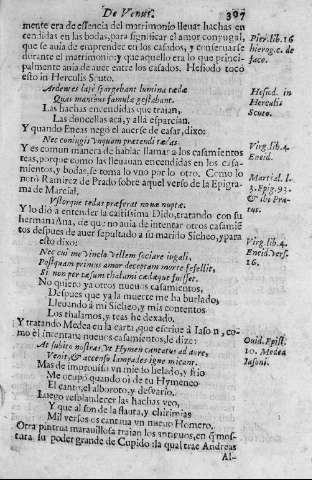 De Venus. 307
mente era de essencia del matrimonio lleuar hachas en
cendidas en las bodas, para significar el amor conyugal,
que se auia de emprender en los casados, y conseruarse
durante el matrimonio: y que aquello era lo que princi-
palmente auia de auer entre los casados. Hesiodo tocò
esto in Herculis Scuto.
Pier. lib. 16
hierog. c. de
faco.
Ardentes latè spargebant lumina tædæ
Quas manibus famulæ gestabant.
Las hachas encendidas que traian,
Las doncellas acà, y allà esparcian.
Hesiod. in
Herculis
Scuto.
Y quando Eneas negò el auerse de casar, dixo:
Nec coniugis vnquam prætendi tædas.
Y es comun manera de hablar llamar a los casamientos
teas, porque como las lleuauan encendidas en los casa-
mientos, y bodas, se toma lo vno por lo otro. Como lo
notò Ramirez de Prado sobre aquel verso de la Epigra
ma de Marcial.
Virg. lib. 4.
Eneid.
Martial. l.
3. Epig. 93.
& ibi Pra-
tus.
Vstorque tedas præferat nouæ nuptæ.
Y lo diò a entender la castissima Dido, tratando con su
hermana Ana, de que no auia de intentar otros casamiẽ
tos despues de auer sepultado a su marido Sicheo, y para
esto dixo:
Nec cui me vinclo vellem sociare iugali,
Postquam primus amor deceptam morte fefellit,
Si non pertæsum thalami tædæque fuisset.
Virg. lib. 4.
Eneid. vers.
16.
No quiero ya otros nueuos casamientos,
Despues que ya la muerte me ha burlado,
Lleuando a mi Sicheo, y mis contentos
Los thalamos, y teas he dexado.
Y tratando Medea en la carta, que escriue a Iason, co-
mo el intentaua nueuos casamientos, le dize:
At subito nostras vt Hymen cantatus ad aures,
Venit, & accenso lampades igne micant.
Ouid. Epist.
10. Medea
Iasoni.
Mas de improuiso vn miedo helado, y frio
Me ocupò quando oì de tu Hymeneo
El canto, el alboroto, y desuario,
Luego resplandecer las hachas veo,
Y que al son de la flauta, y chirimias
Mil versos os cantaua vn nueuo Homero.
Otra pintura marauillosa traian los antiguos, en q̃ mos-
traua su poder grande de Cupido: la qual trae Andreas
Al-